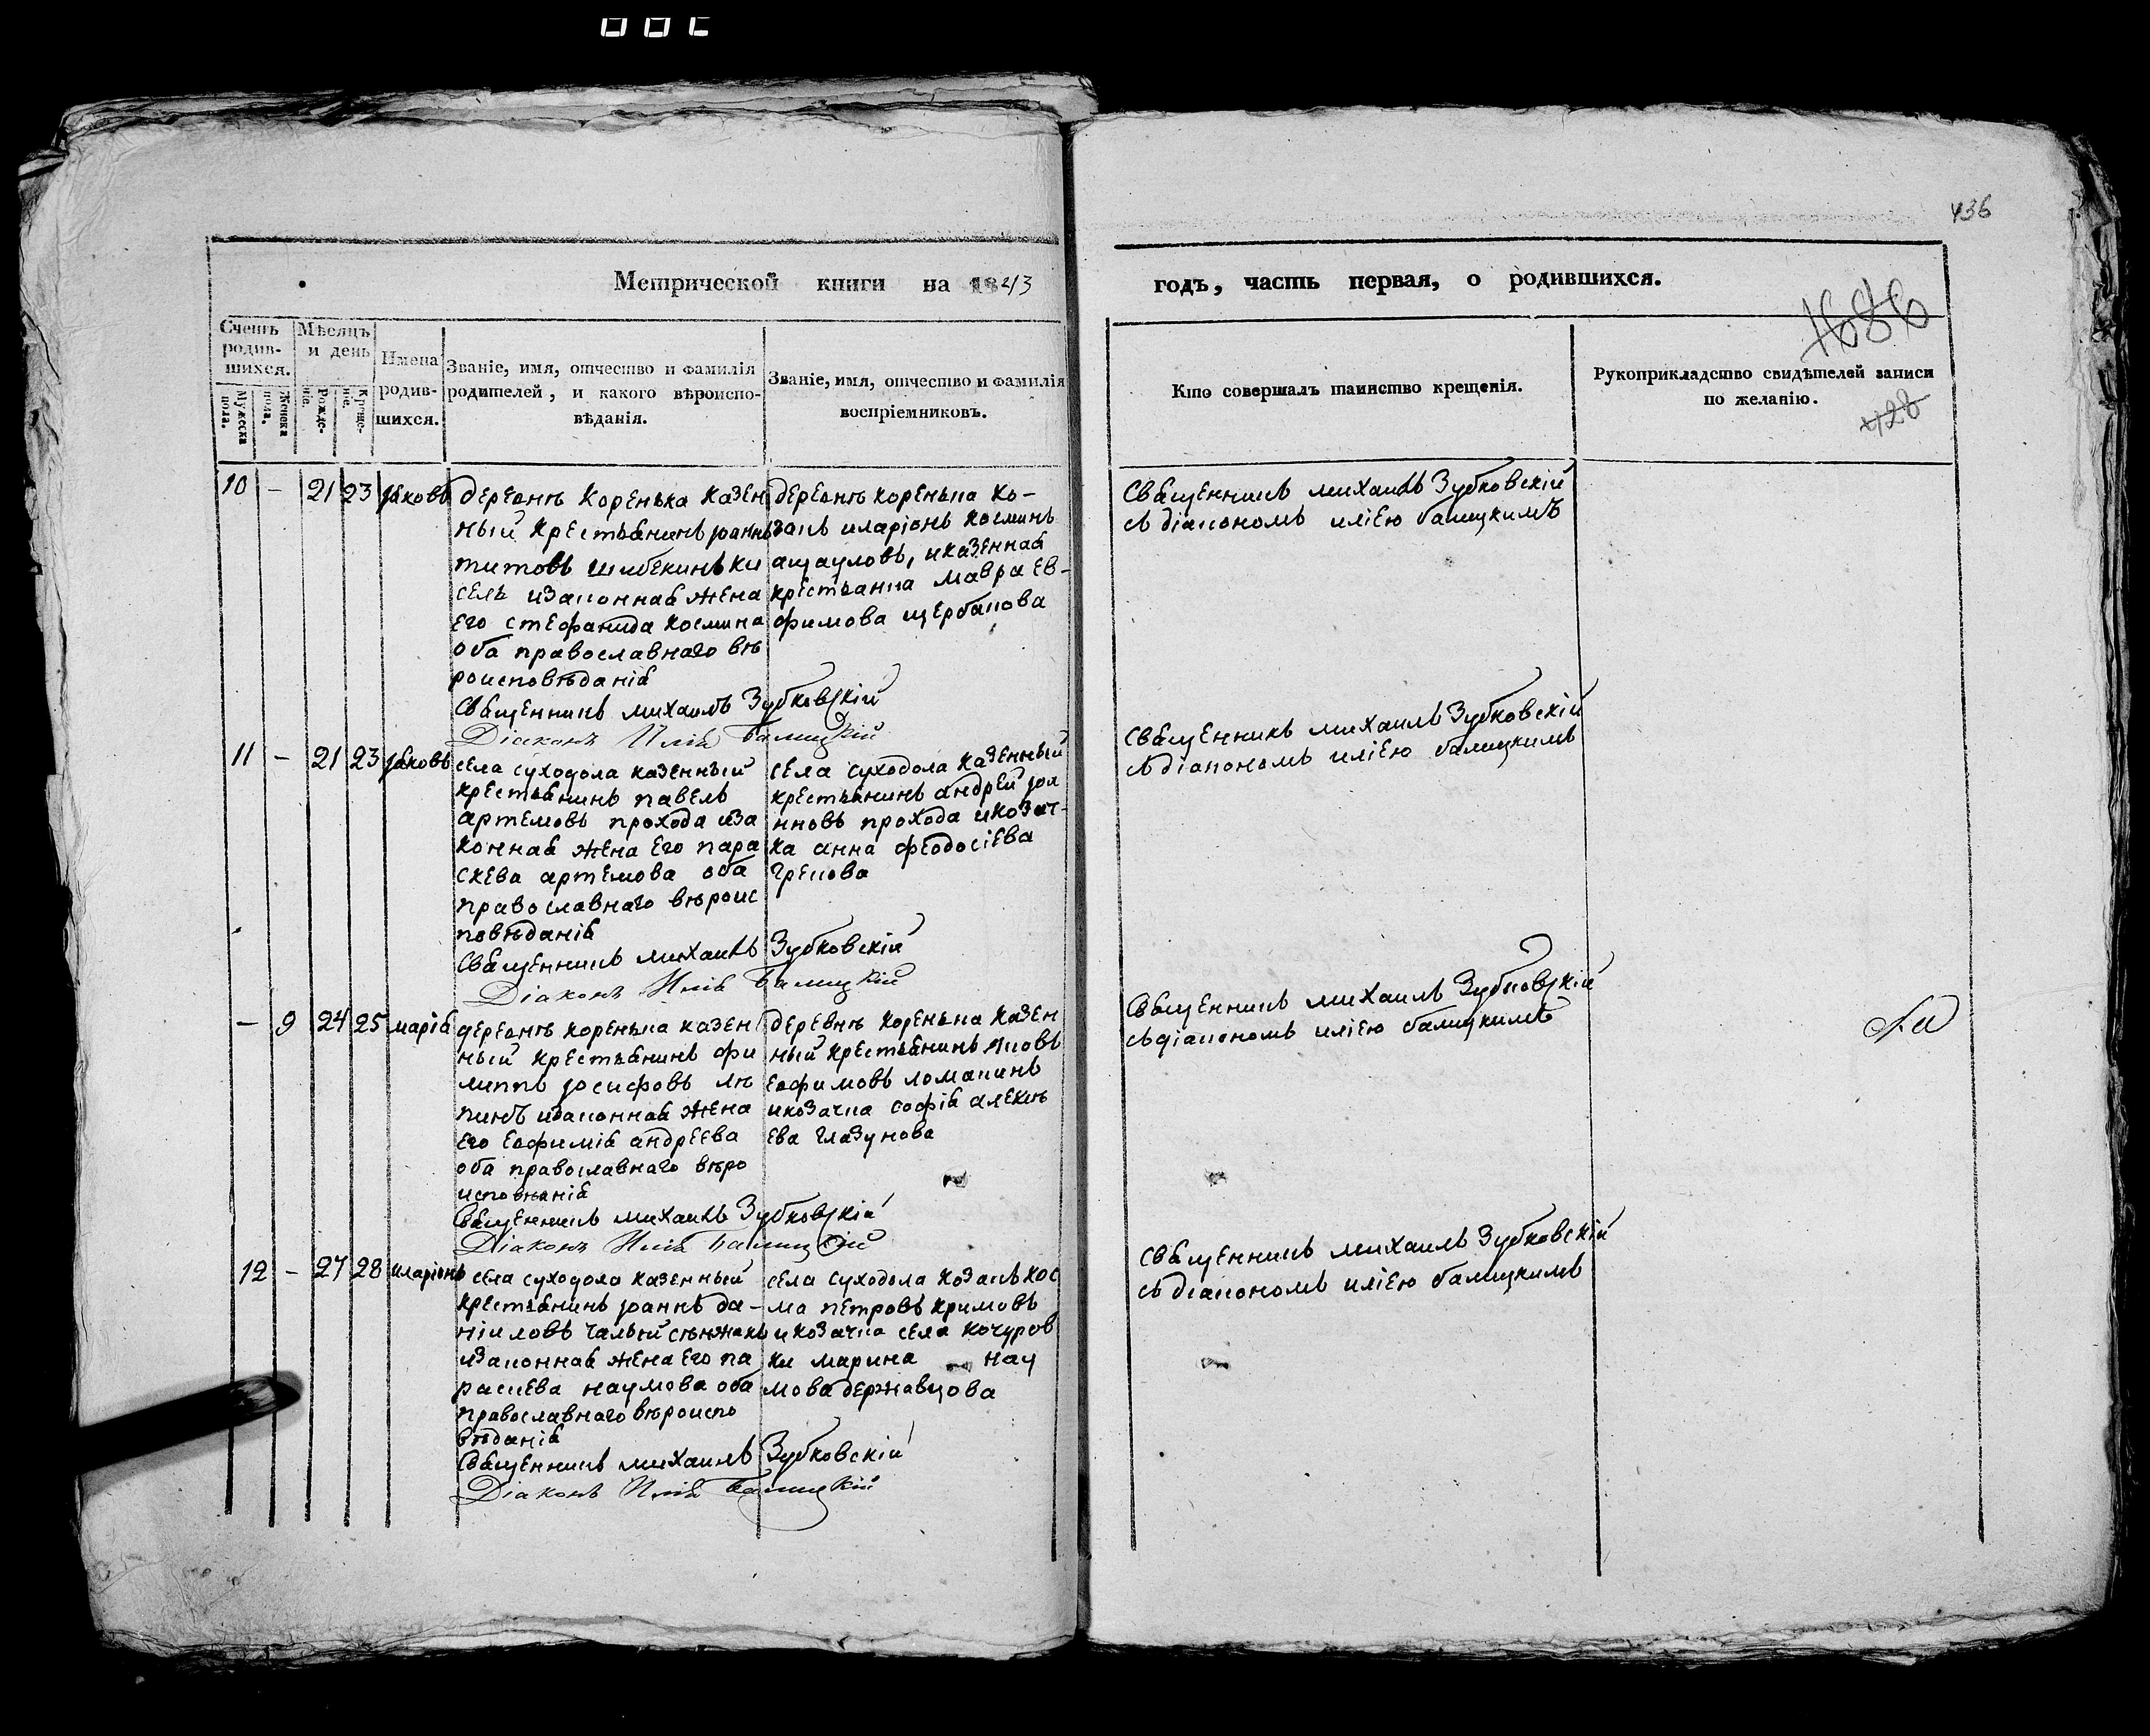 436
Метрической книги на 1843
годъ, часть первая, о родившихся.
1686
428
Счетъ родив-шихся.
Мужеска пола.
Женска пола.
Мѣсяцъ и день
Рожде-ніе.
Креще-ніе.
Имена родив-шихся.
Званіе, имя, отчество и фамилія
родителей, и какого вѣроиспо-
вѣданія.
Званіе, имя, отчество и фамилія
воспріемниковъ.
Кто совершалъ таинство крещенія.
Рукоприкладство свидѣтелей записи
по желанію.
10 – 21 23 Іаковъ
деревнѣ Коренька казен
ный крестьянинъ Іоаннъ
титовъ шибекинъ ки
селъ изаконная жена
его стефанида космина
оба православнаго вѣ
роисповѣданія
Священникъ михаилъ Зубковскій
Діаконъ Илія Балицкій
деревнѣ коренька ко-
закъ иларіонъ косминъ
ащауловъ, иказенная
крестьянка мавра ев-
фимова щербакова
Священникъ михаилъ Зубковскій
съ діакономъ иліею балицкимъ
11 – 21 23 Іаковъ
села суходола казенный
крестьянинъ павелъ
артемовъ прохода иза
конная жена его пара
скева артемова оба
православнаго вѣроис
повѣданія
Священникъ михаилъ Зубковскій
Діаконъ Илія Балицкій
села суходола казенный
крестьянинъ андрей Іоа
нновъ прохода икозач-
ка анна феодосіева
грекова
Священникъ михаилъ Зубковскій
съ діакономъ иліею балицкимъ
– 9 24 25 марія
деревнѣ коренька казен
ный крестьянинъ фи
липпъ Іосифовъ лѣ
пинъ изаконная жена
его евфимія андреева
оба православнаго вѣро
исповѣнанія
Священникъ михаилъ Зубковскій
Діаконъ Илія Балицкій
деревнѣ коренька казен
ный крестьянинъ Яковъ
евфимовъ ломакинъ
икозачка софія алексѣ
ева глазунова
Священникъ михаилъ Зубковскій
съ діакономъ иліею балицкимъ
12 – 27 28 иларіонъ
села суходола казенный
крестьянинъ Іоаннъ да-
ніиловъ чалый снѣжакъ
изаконная жена его па
раскева наумова оба
православнаго вѣроиспо
вѣданія
Священникъ михаилъ Зубковскій
Діаконъ Илія Балицкій
села суходола козакъ кос
ма петровъ кримовъ
икозачка села кочуров
ки марина нау
мова державцова
Священникъ михаилъ Зубковскій
съ діакономъ иліею балицкимъ